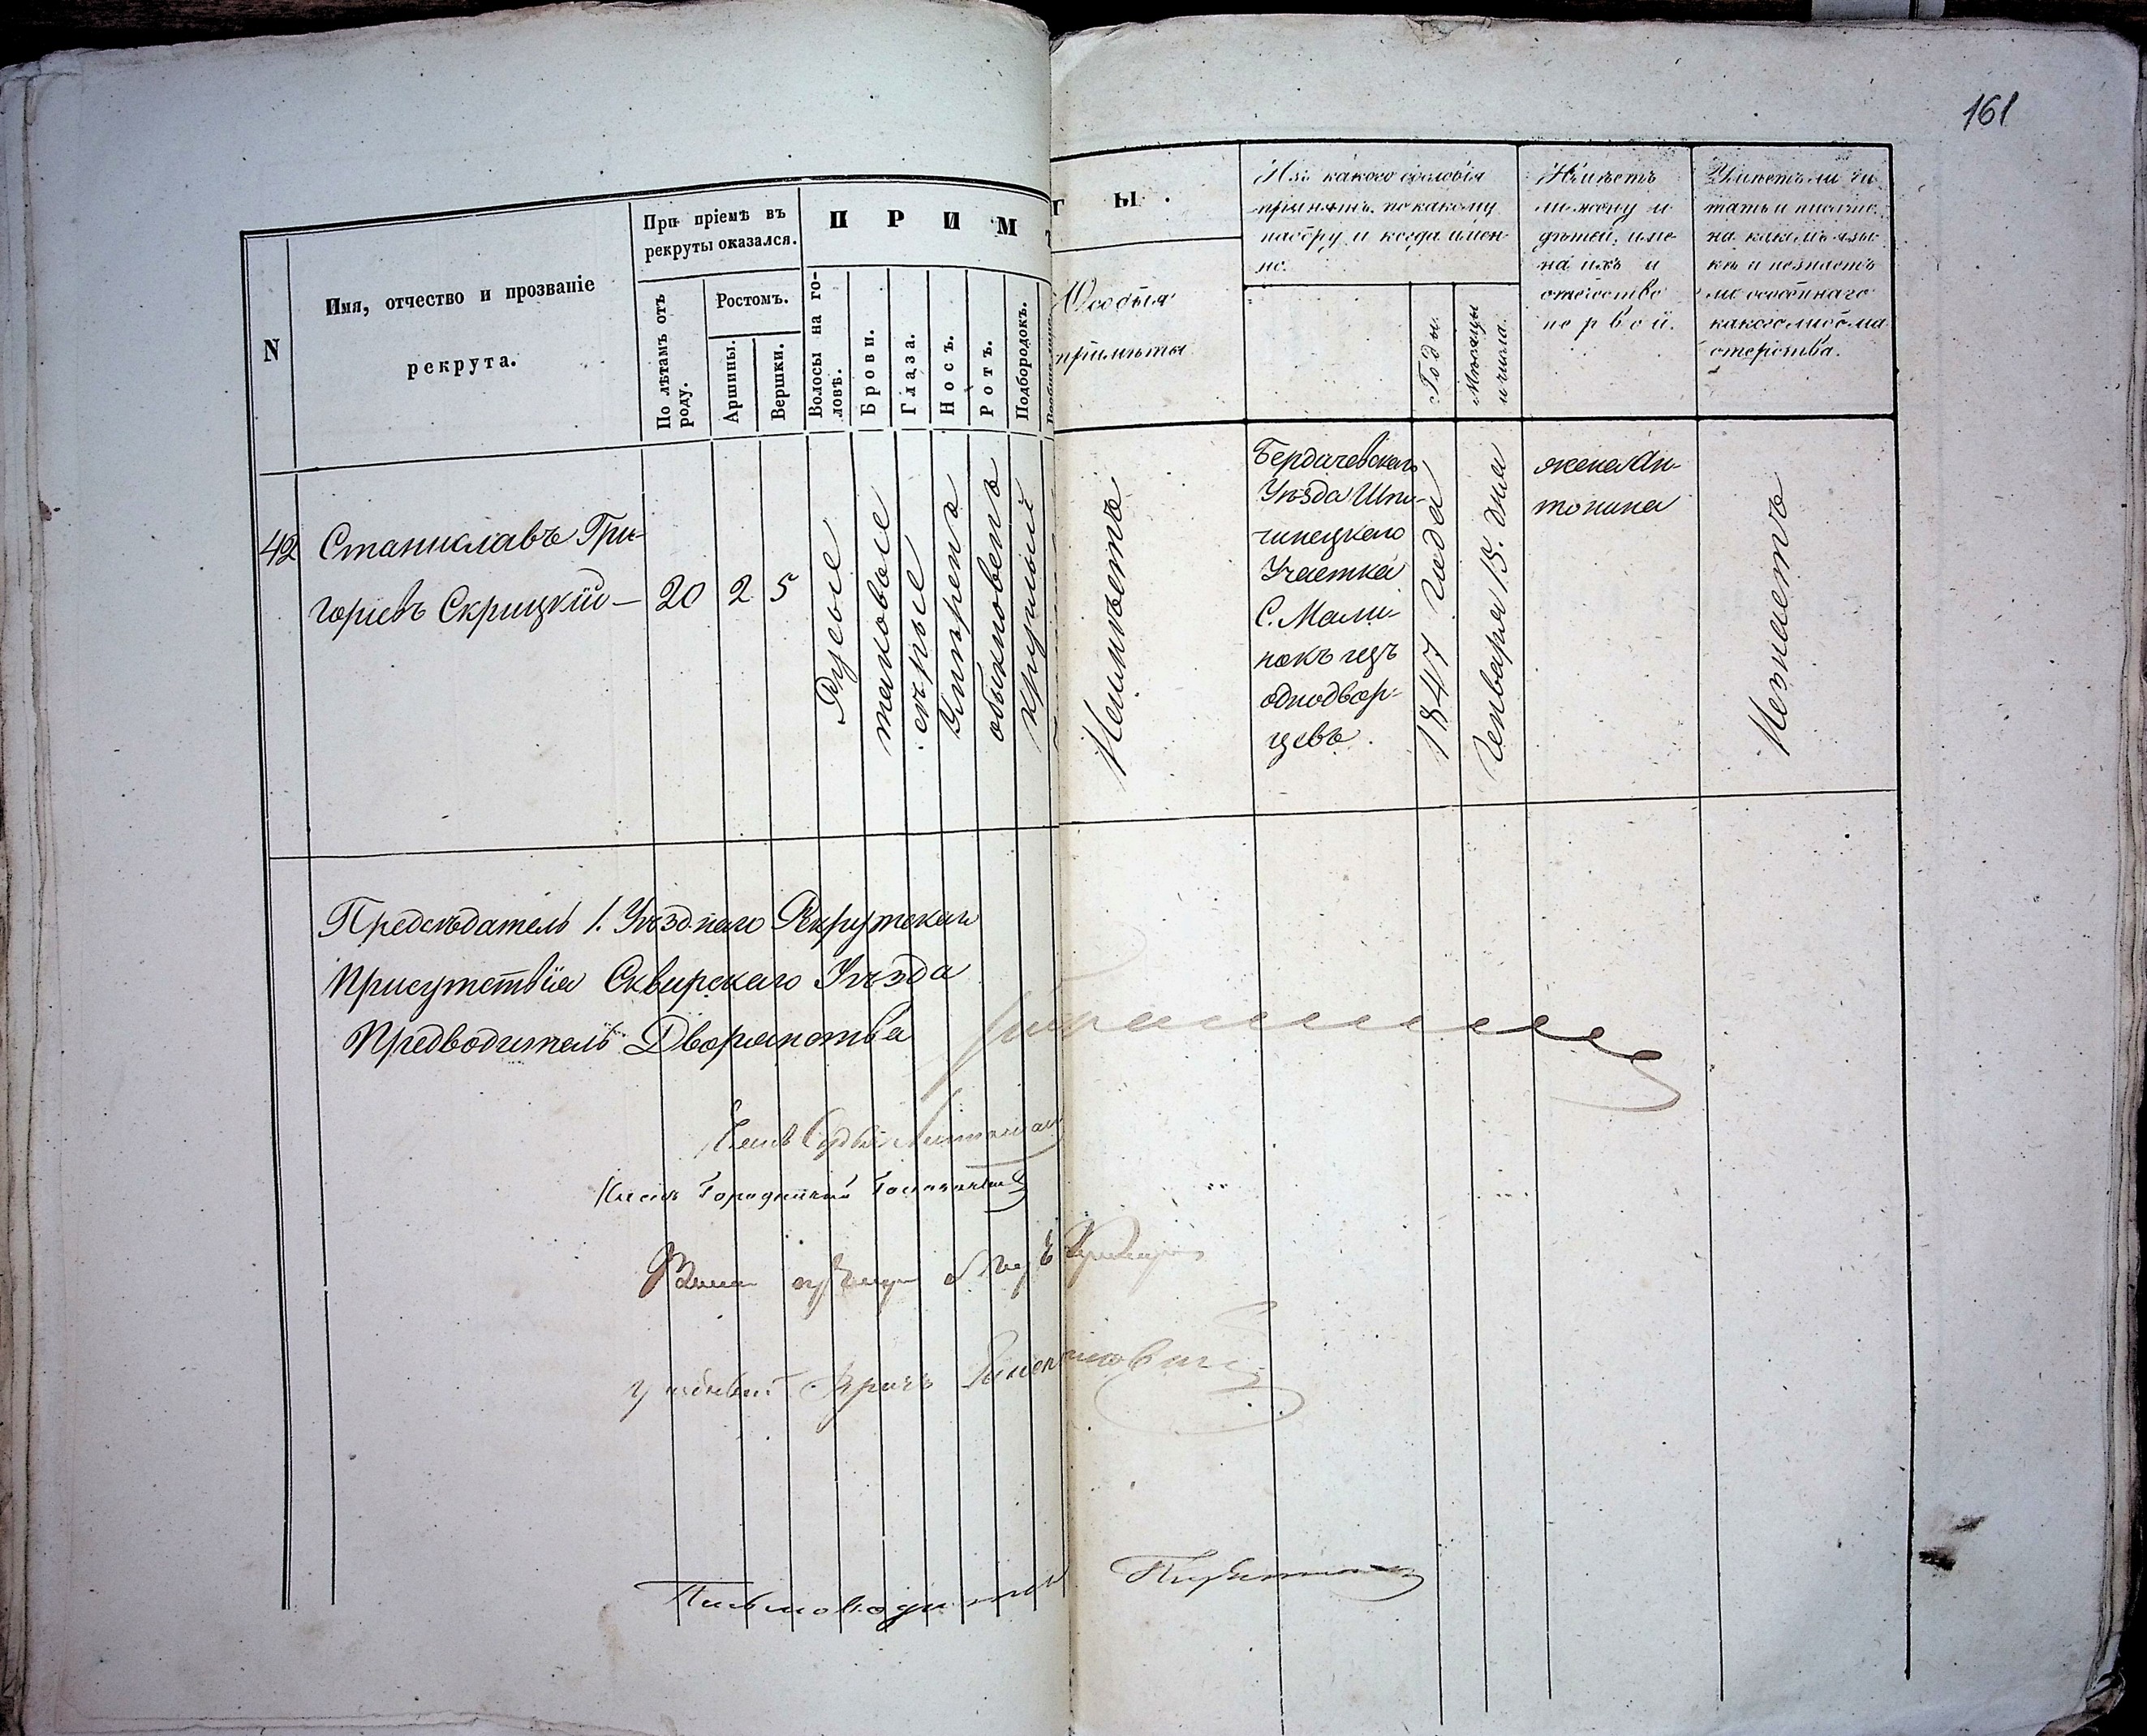 161
N
Имя, отчество и прозваніе
рекрута.
При пріемѣ въ
рекруты оказался.
По лѣтамъ отъ
роду.
Ростомъ.
Аршины.
Вершки.
П Р И М
Волосы на го-
ловѣ.
Брови.
Глаза.
Носъ.
Ротъ.
Подбородокъ.
Т Ы .
Особыя
примѣты
Изъ какого сословія
принятъ, по какому
набору и когда имен-
но.
Годы.
Мѣсяцы
и числа.
Имѣетъ
ли жену и
дѣтей, име-
на ихъ и
отечество
первой.
Умѣетъ ли чи-
тать и писать
на какомъ язы-
кѣ и незнаетъ
ли особеннаго
какого либо ма-
стерства.
42
Станиславъ Гри-
горiевъ Скрицкiй —
20
2
5
Русые
таковые
сѣрые
Умѣренъ
обыкновенъ
круглый
Неимѣетъ
Бердичевскаго
Уѣзда Шпи-
чинецкаго
Участка
С. Мали-
нокъ изъ
однодвор-
цевъ.
1847 года
Генваря 15. дня
жена Ан-
тонина
Незнаетъ
Предсѣдатель 1. Уѣзднаго Рекрутскаго
Присутствiя Сквирскаго Уѣзда
Предводитель Дворянства
Членъ Городничий
Врачъ
Письмоводитель